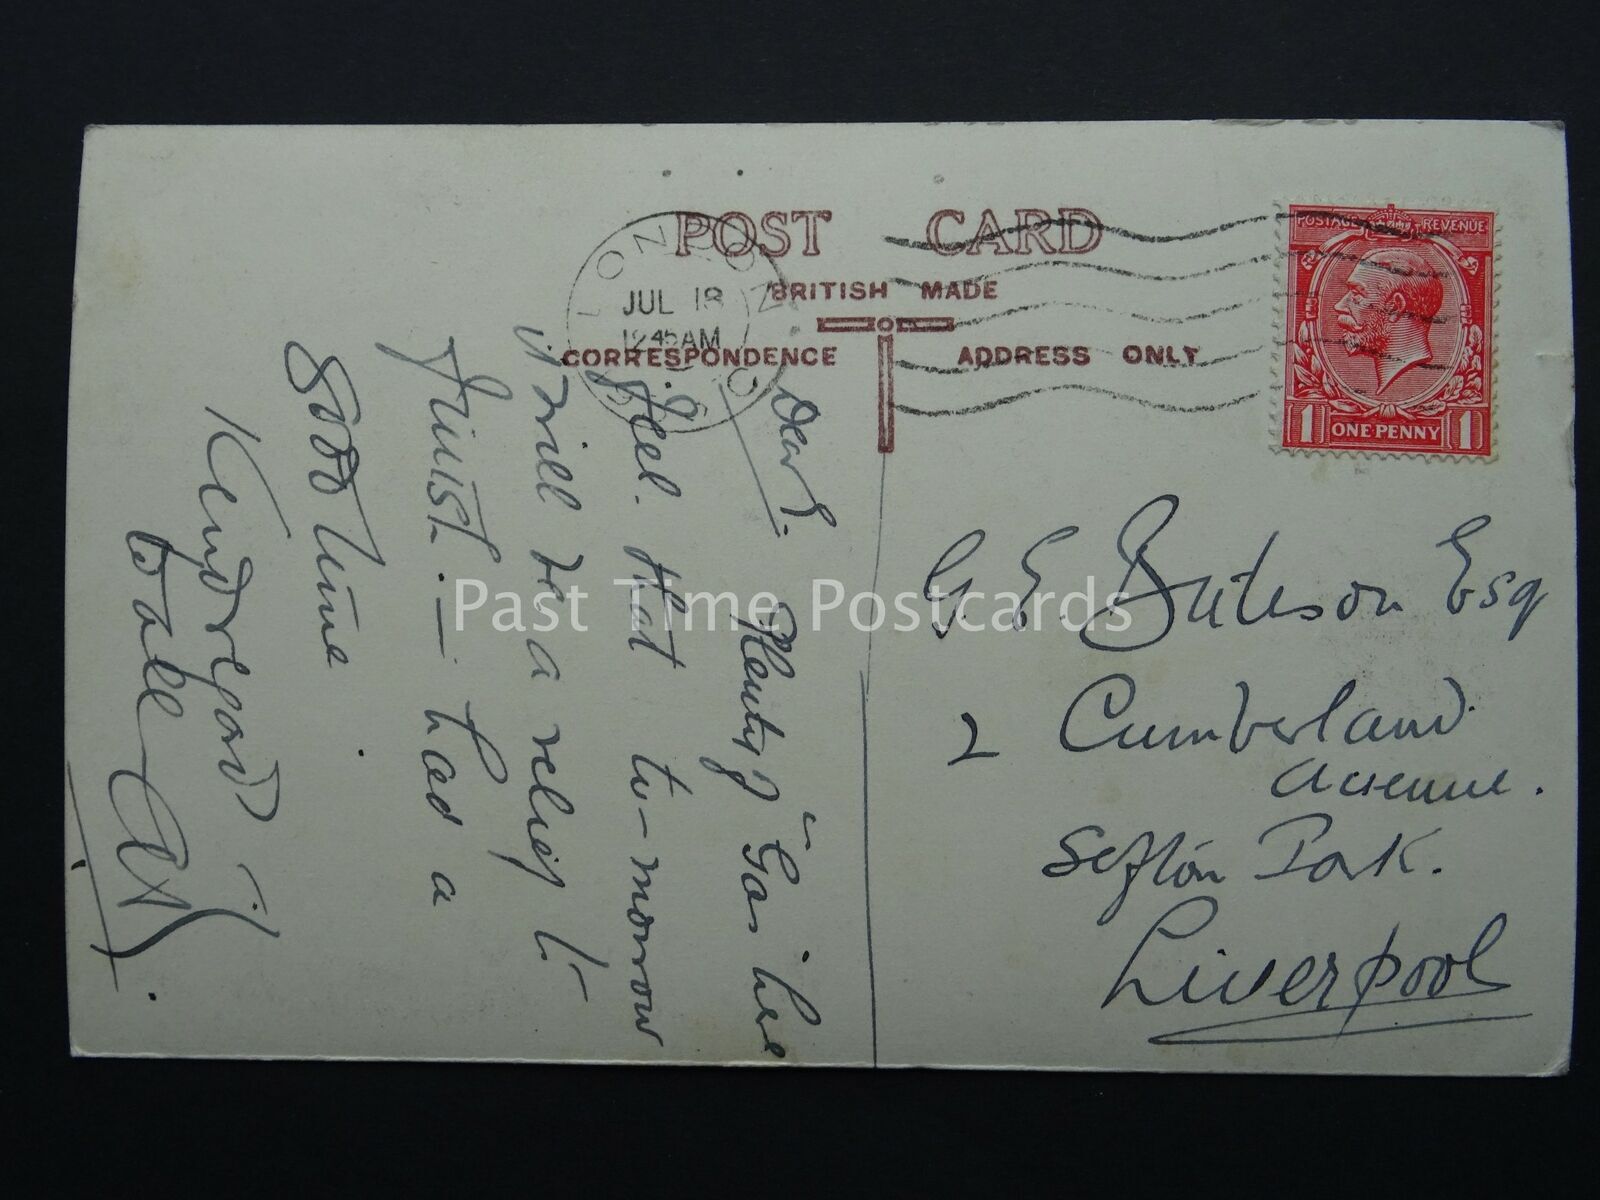 POST CARD
BRITISH MADE
CORRESPONDENCE ADDRESS ONLY
LONDON
JUL 18
12.45AM
POSTAGE REVENUE
1 ONE PENNY 1
Dear G.
Plenty "Gas" here
I feel that to-morrow
it will be a relief to
finish. — Had a
good time
Kind regards
to all
G. E. Esq
2 Cumberland
Avenue.
Sefton Park.
Liverpool
Past Time Postcards